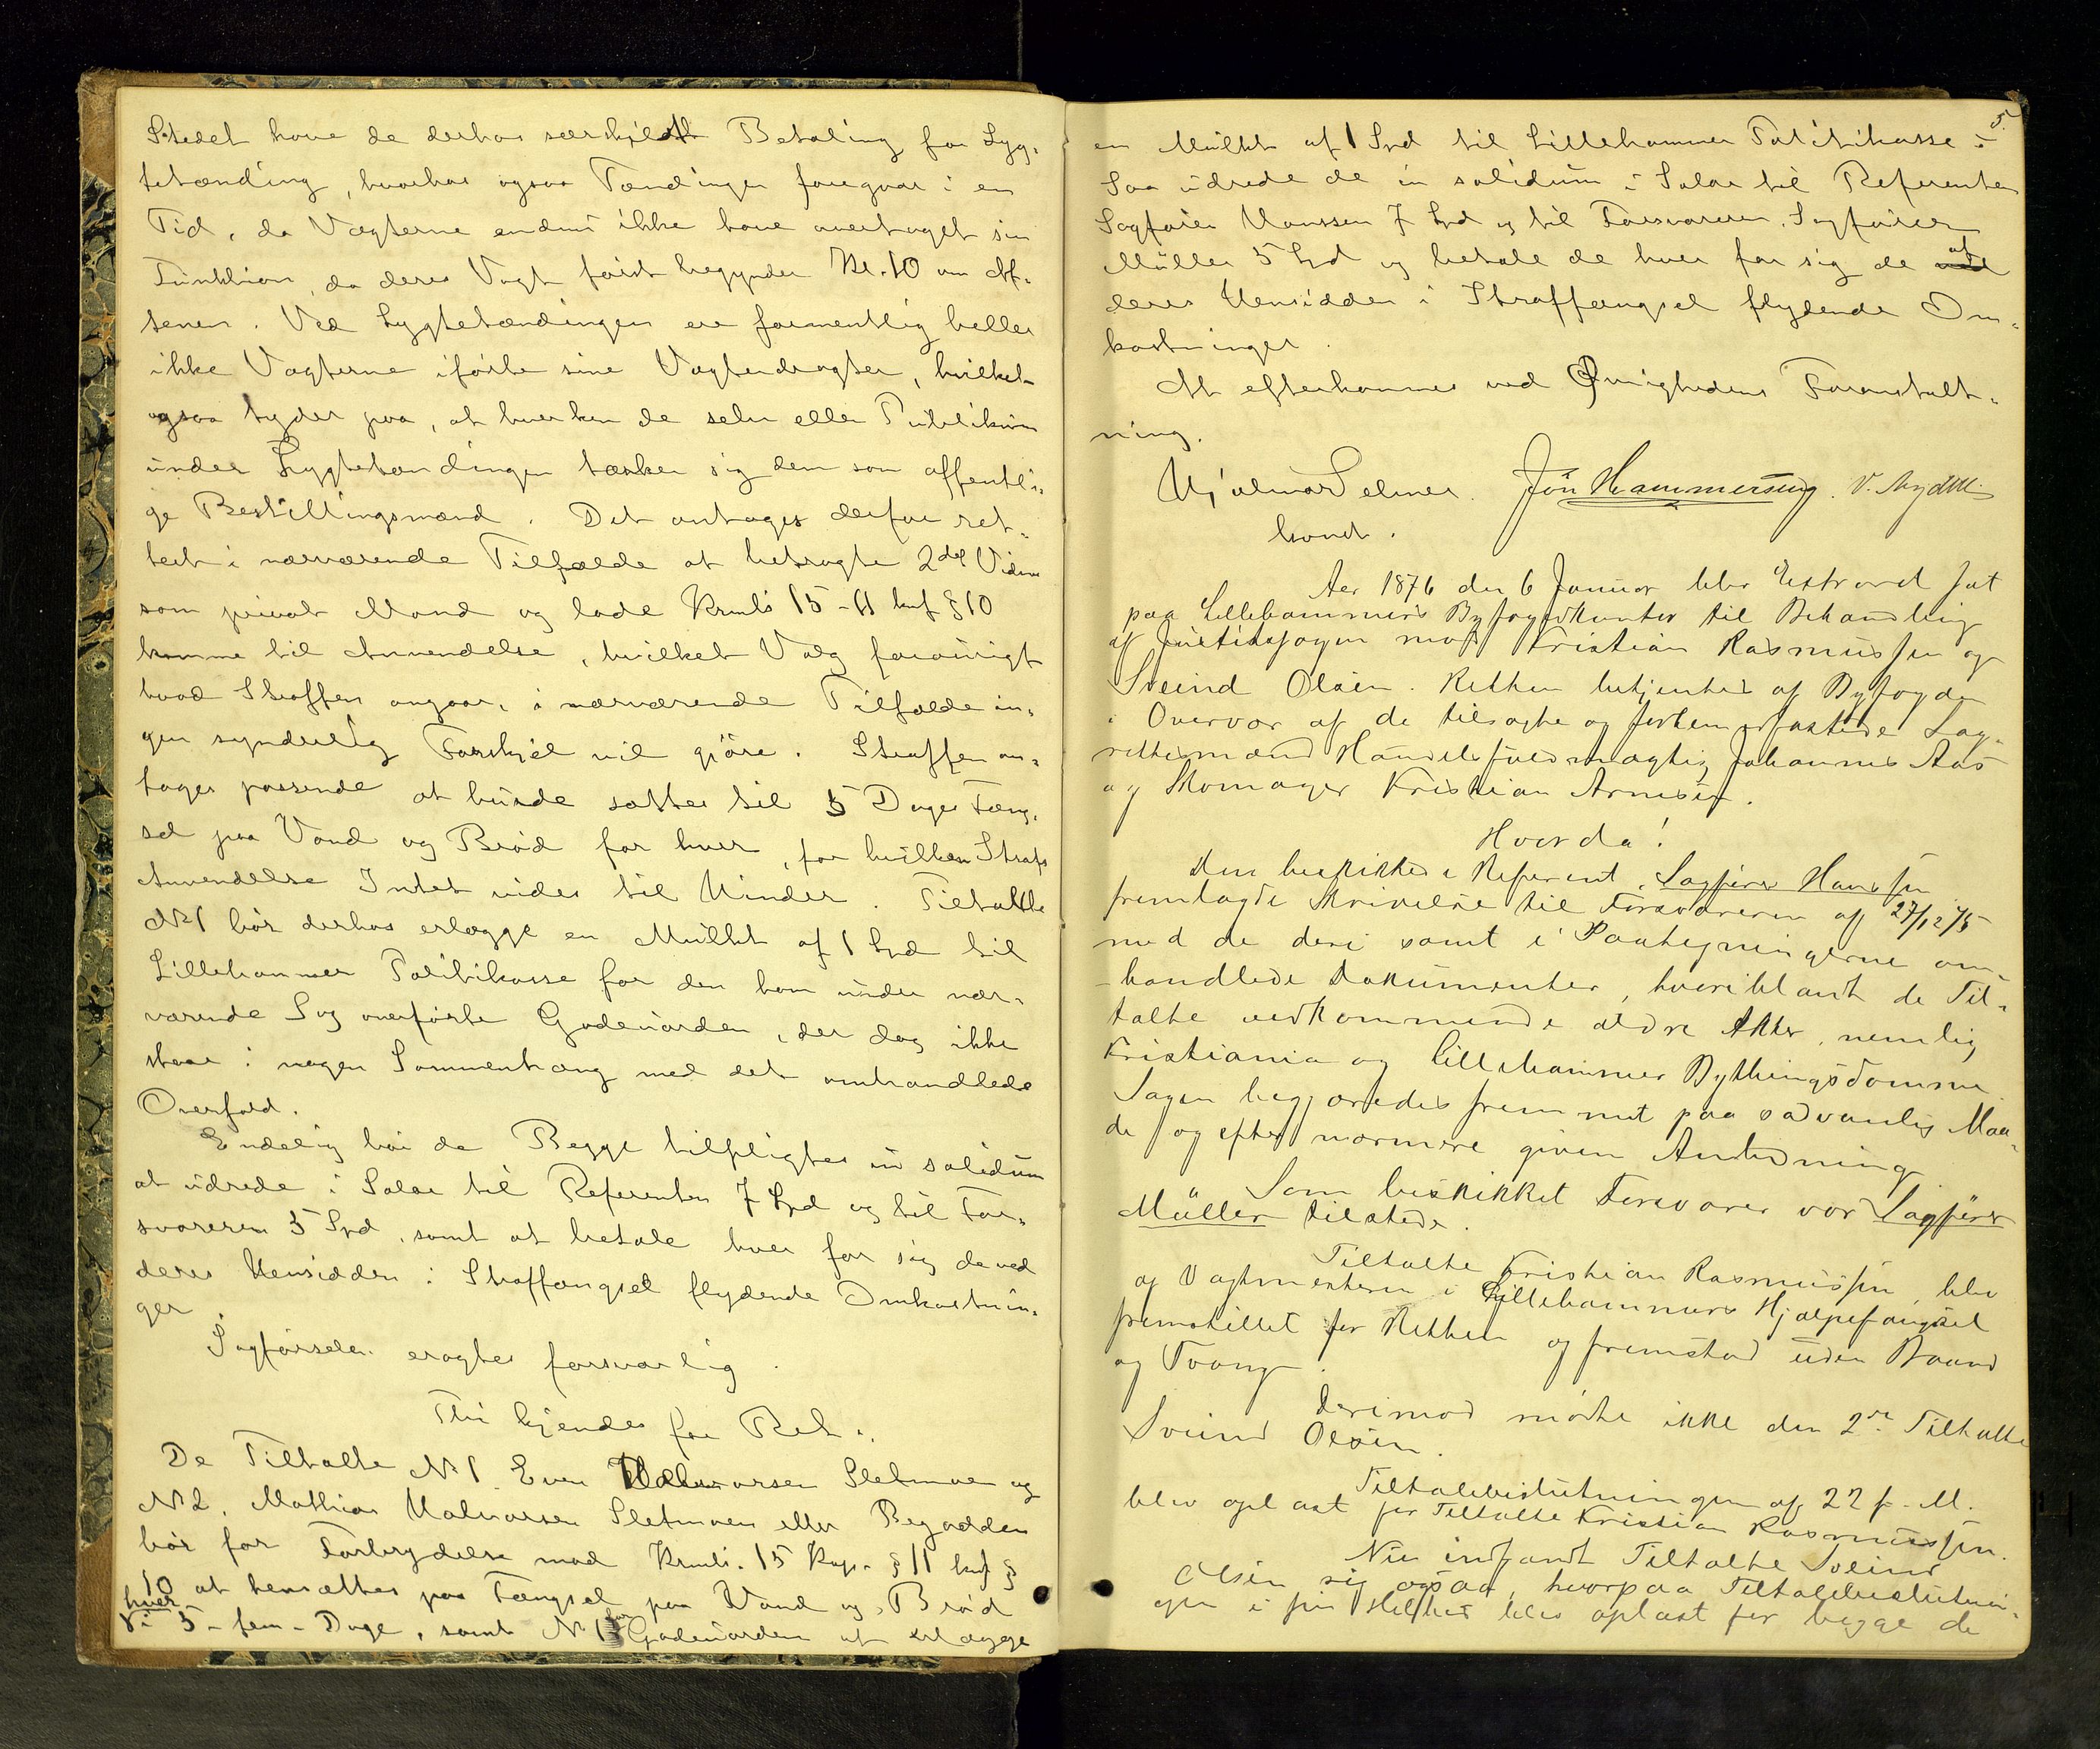 Stedet have de derhos særskildt Betaling for Lyg-
tetænding, hvorhos ogsaa Tændingen foregaar i en
Tid, da Vægterne endnu ikke have overtaget sin
Funktion, da deres Vagt først begynder Kl. 10 om Af-
tenen. Ved Lygtetændingen ere formentlig heller
ikke Vægterne iførte sine Vægterdragter, hvilket
ogsaa tyder paa, at hverken de selv eller Publikum
under Lygtetændingen tænker sig dem som offentli-
ge Bestillingsmænd. Det antages derfor ret-
test i nærværende Tilfælde at betragte 2det Vidne
som privat Mand og lade Krmls 15-11 knf § 10
komme til Anvendelse, hvilket Valg forøvrigt
hvad Straffen angaar, i nærværende Tilfælde in-
gen synderlig Forskjel vil gjöre. Straffen an-
tages passende at burde sættes til 5 Dages Fæng-
sel paa Vand og Brød for hver, for hvilken Strafs
Anvendelse Intet vides til Hinder. Tiltalte
No 1 bör derhos erlægge en Mulkt af 1 Spd til
Lillehammer Politikasse for den ham under nær-
værende Sag overførte Gadeuorden, der dog ikke
staar i nogen Sammenhæng med det omhandlede
Overfald.
Endelig bör de Begge tilpligtes in solidum
at udrede i Salær til Referenten 7 Spd og til For-
svareren 5 Spd, samt at betale hver for sig de ved
deres Hensidden i Straffængsel flydende Omkostnin-
ger.
Sagførselen eragtes forsvarlig.
Thi kjendes for Ret:
De Tiltalte No 1 Even Halvorsen Sletmoen og
No 2. Mathias Halvorsen Sletmoen eller Bygodden
bör for Forbrydelse mod Krmls. 15 Kap. § 11 knf §
10 at hensættes paa Fængsel paa Vand og Brød
hver
i 5 - fem - Dage, samt No 1 for Gadeuorden at erlægge
5.
en Mulkt af 1 Spd til Lillehammer Politikasse.
Saa udrede de in solidum i Salær til Referenten
Sagfører Hanssen 7 Spd og til Forsvareren, Sagfører
Müller 5 Spd og betale de hver for sig de af
deres Hensidden i Straffængsel flydende Om-
kostninger.
At efterkommes ved Øvrighedens Foranstalt-
ning.
Hjalmar Selmer. Jón Hammerseng.
konst.
Aar 1876 den 6 Januar blev Extraret sat
paa Lillehammers Byfogedkontor til Behandling
af Justitssagen mod Kristian Rasmussen og
Sveind Olsen. Retten betjentes af Byfogden
i Overvær af de tilsagte og forhen edfæstede Lag-
rettesmænd Handelsfuldmægtig Johannes Aas
og Skomager Kristian Arnesen.
Hvor da!
Den beskikkede Referent, Sagfører Hanssen
fremlagde Skrivelse til Forsvareren af 27/12 75
med de deri samt i Paategningerne om-
handlede Dokumenter, hvoriblant de Til-
talte vedkommende ældre Akter, nemlig
Kristiania og Lillehammer Bythingsdomme.
Sagen begjæredes fremmet paa sædvanlig Maa-
de og efter nærmere given Anledning.
Som beskikket Forsvarer var Sagfører
Müller tilstede.
Tiltalte Kristian Rasmussen blev
af Vagtmesteren i Lillehammers Hjælpefængsel
fremstillet for Retten og fremstod uden Baand
og Tvang.
Derimod mødte ikke den 2den Tiltalte
Sveind Olsen.
Tiltalebeslutningen af 22 f. M.
blev oplæst for Tiltalte Kristian Rasmussen.
Nu indfandt Tiltalte Sveind
Olsen sig ogsaa, hvorpaa Tiltalebeslutnin-
gen i sin Helhed blev oplæst for begge de